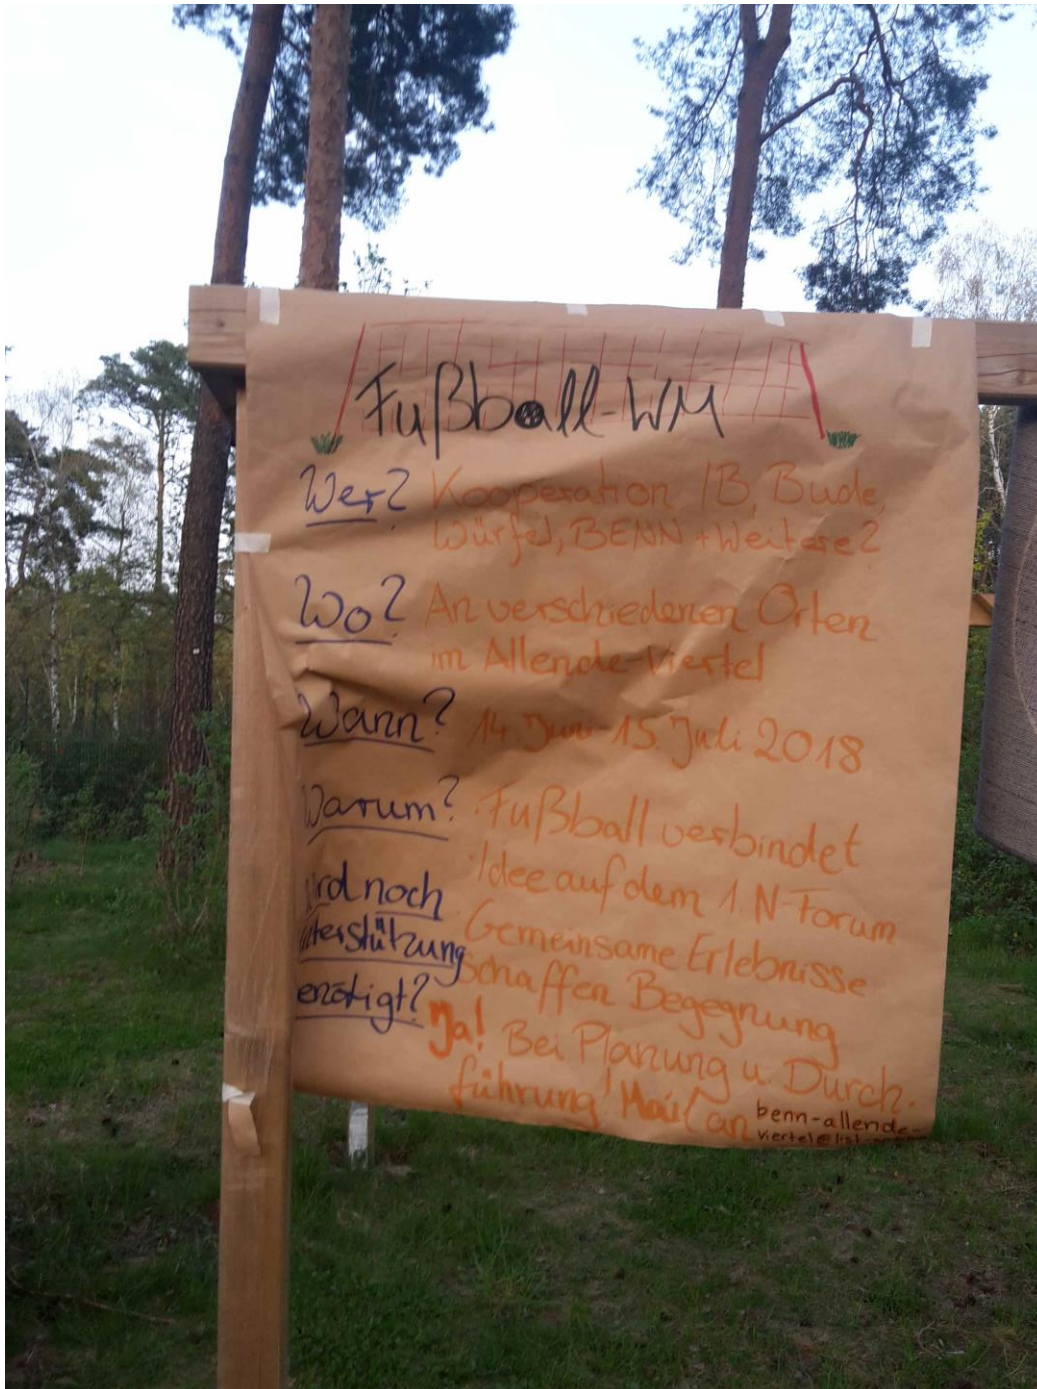 Fußball-WM
Wer? Kooperation IB, Bude,
Würfel, BENN + Weitere?
Wo? An verschiedenen Orten
im Allende-Viertel
Wann? 14. Juni - 15. Juli 2018
Warum? Fußball verbindet
Idee auf dem 1. N-Forum
noch
Gemeinsame Erlebnisse
schaffen Begegnung
Ja! Bei Planung u. Durch-
führung! Mail an benn-allende-